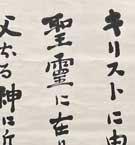 キリストに由
聖靈に在り
父なる神に近